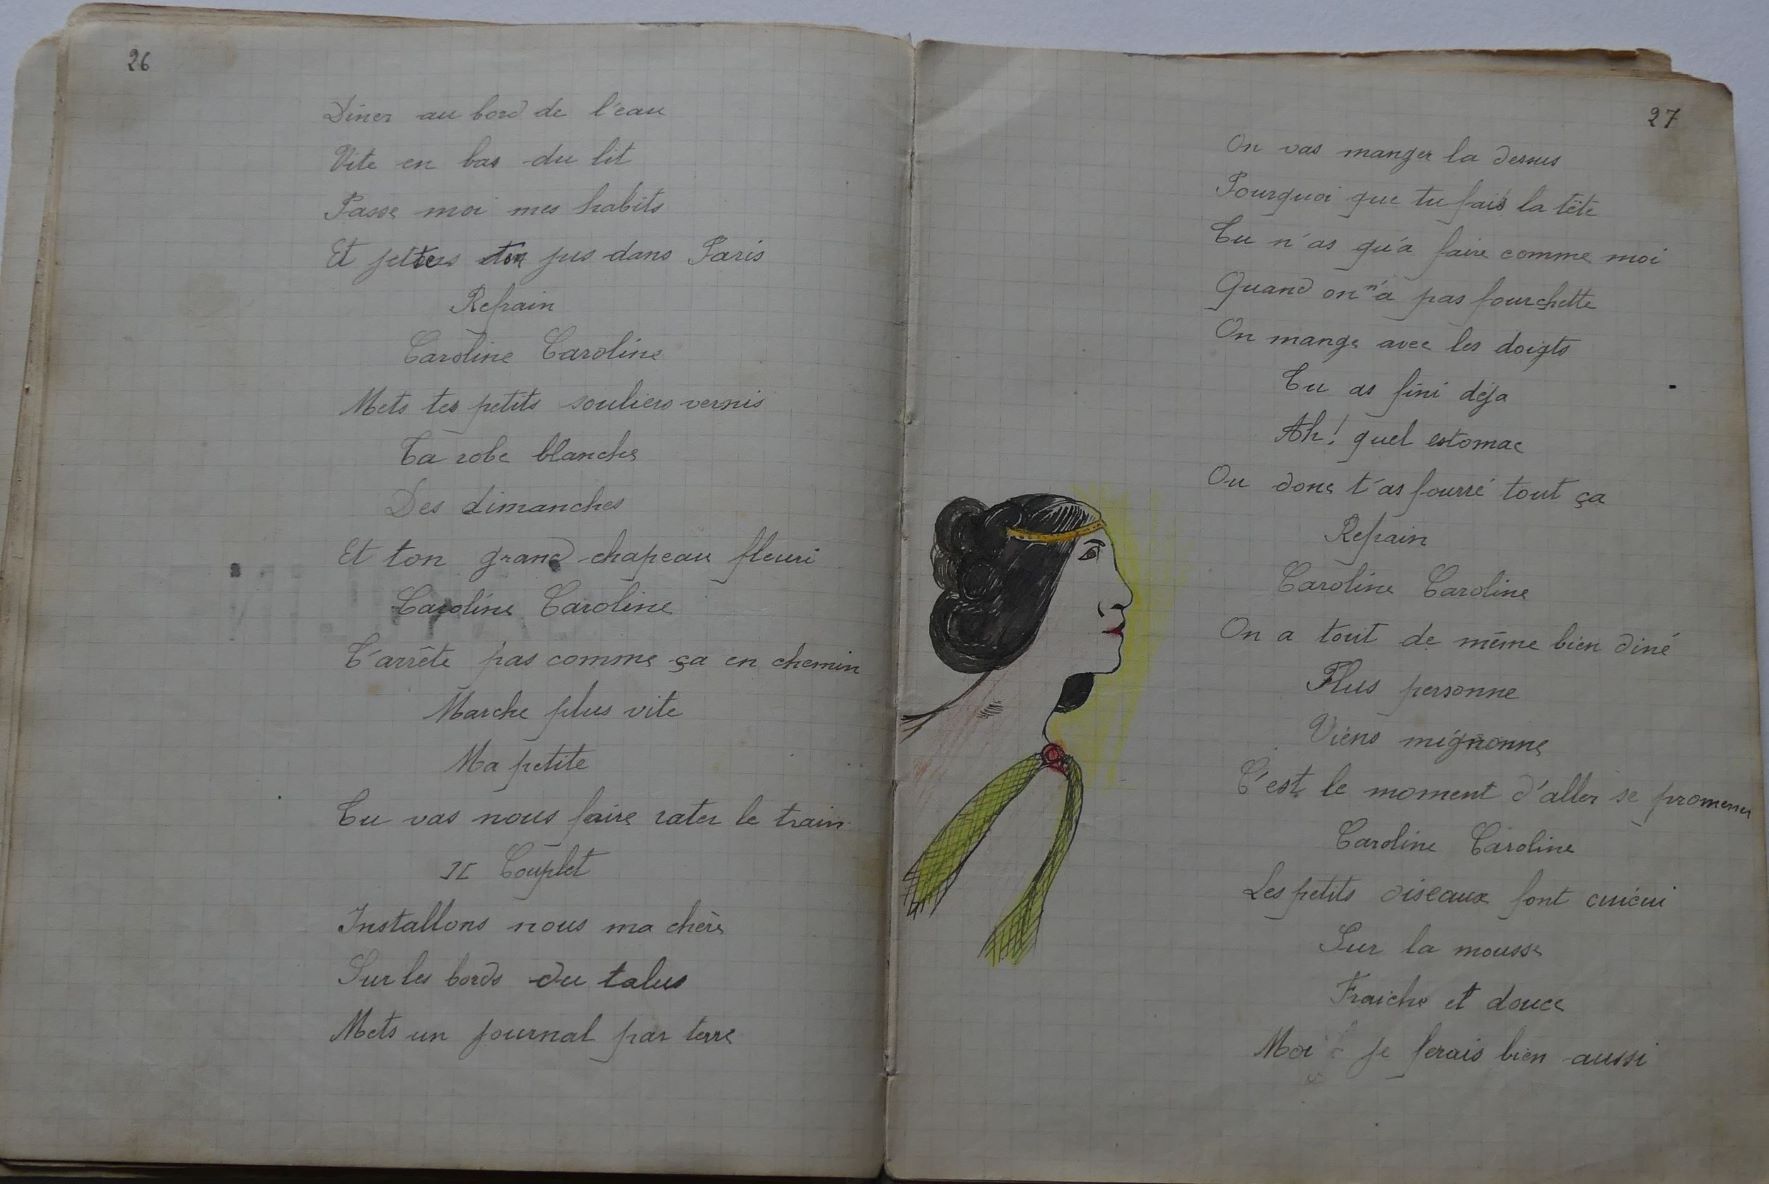 26
Diner au bord de l'eau
Vite en bas du lit
Passe moi mes habits
Et jettes ton jus dans Paris
Refrain
Caroline Caroline
Mets tes petits souliers vernis
Ta robe blanche
Des dimanches
Et ton grand chapeau fleuri
Caroline Caroline
T'arrête pas comme ça en chemin
Marche plus vite
Ma petite
Tu vas nous faire rater le train
II Couplet
Installons nous ma chère
Sur les bords du talus
Mets un journal par terre
27
On vas manger la dessus
Pourquoi que tu fais la tête
Tu n'as qu'a faire comme moi
Quand on n'a pas fourchette
On mange avec les doigts
Tu as fini déja
Ah! quel estomac
Ou donc t'as fourré tout ça
Refrain
Caroline Caroline
On a tout de même bien diné
Plus personne
Viens mignonne
C'est le moment d'aller se promener
Caroline Caroline
Les petits oiseaux font cuicui
Sur la mousse
Fraiche et douce
Moi je ferais bien aussi